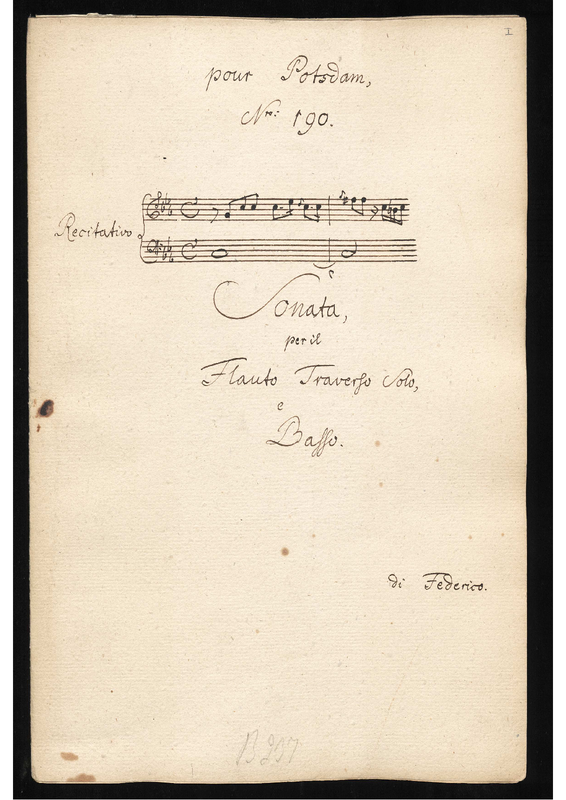 I
pour Potsdam,
Nro: 190.
Recitativo
Sonata,
per il
Flauto Traverso Solo,
e
Basso.
di Federico.